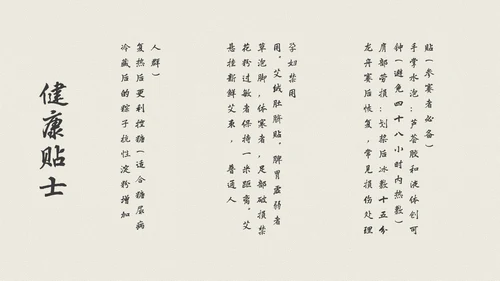 龙舟赛后恢复，常见损伤处理
肩部劳损:划桨后冰敷十五分
钟(避免四十八小时内热敷)
手掌水泡:芦荟胶和液体创可
贴(参赛者必备)
悬挂新鲜艾束，普通人
花粉过敏者保持一米距离。艾
草泡脚，体寒者，足部破损禁
用。艾绒肚脐贴，脾胃虚弱者
孕妇禁用
冷藏后的粽子抗性淀粉增加
复热后更利控糖(适合糖尿病
人群)
健康贴士